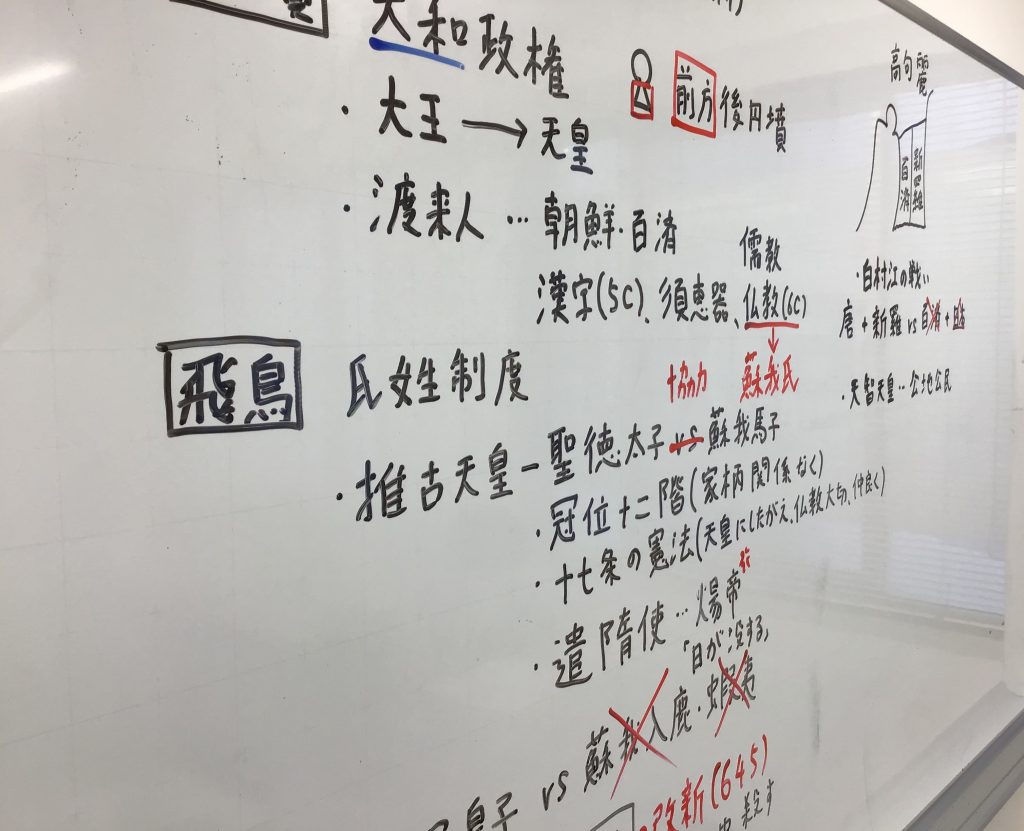 大和政権
前方後円墳
・大王→天皇
・渡来人…朝鮮・百済
儒教
漢字(5C)、須恵器、仏教(6C)
協力 蘇我氏
飛鳥
氏姓制度
・推古天皇ー聖徳太子vs蘇我馬子
・冠位十二階(家柄関係なく)
・十七条の憲法(天皇にしたがえ、仏教大切、仲良く)
・遣隋使…煬帝
「日が没する」
皇子vs蘇我入鹿・蝦夷
改新(645)
殺す
高句麗
新羅
百済
・白村江の戦い
唐+新羅vs百済+日本
・天智天皇‥公地公民